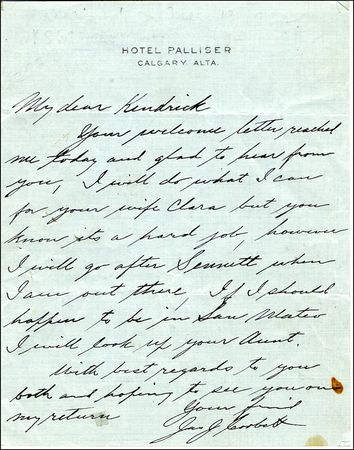 HOTEL PALLISER
CALGARY. ALTA.
My dear Kendrick
Your welcome letter reached
me today and glad to hear from
you, I will do what I can
for your wife Clara but you
know its a hard job, however
I will go after Sennett when
I am out there, If I should
happen to be in San Mateo
I will look up your Aunt.
With best regards to you
both and hoping to see you on
my return
Your friend
Jas J Corbett